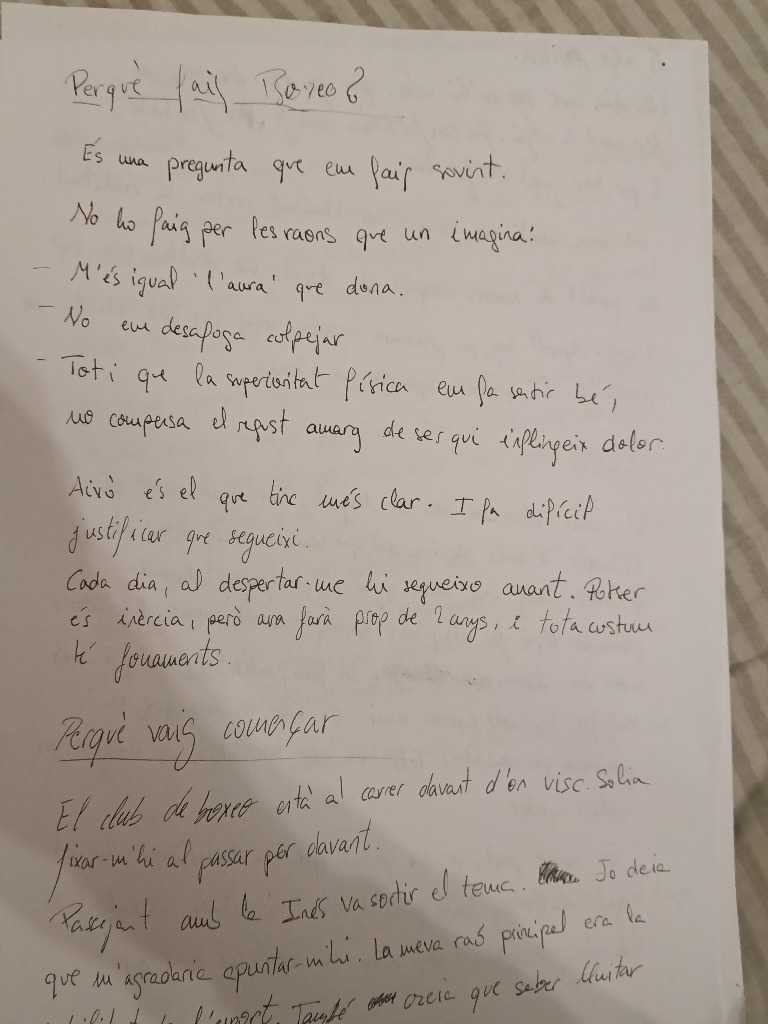 Perquè faig Boxeo?
És una pregunta que em faig sovint.
No ho faig per les raons que un imagina:
- M'és igual 'l'aura' que dona.
- No em desafoga colpejar
- Tot i que la superioritat física em fa sentir bé,
no compensa el regust amarg de ser qui inflingeix dolor.
Això és el que tinc més clar. I fa difícil
justificar que segueixi.
Cada dia, al despertar-me hi segueixo anant. Potser
és inèrcia, però ara farà prop de 2 anys, i tota costum
té fonaments.
Perquè vaig començar
El club de boxeo està al carrer davant d'on visc. Solia
fixar-m'hi al passar per davant.
Passejant amb la Inés va sortir el tema. Jo deia
que m'agradaria apuntar-m'hi. La meva raó principal era la
l'esport. També creia que saber lluitar